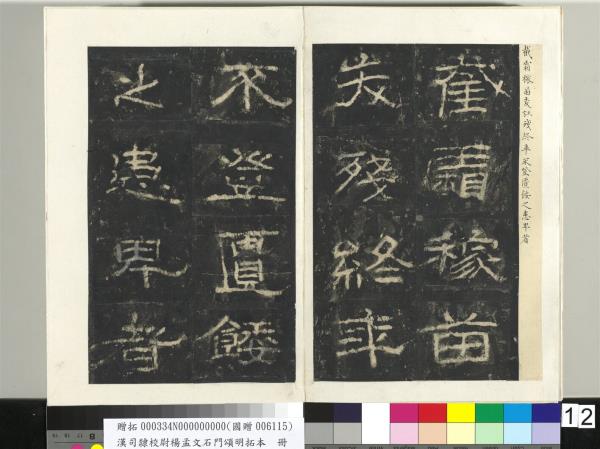 截霜稼苗夭殘終年不登匱餧之患卑者
截霜稼苗
夭殘終年
不登匱餧
之患卑者
贈拓 000334N000000000(國贈 006115)
漢司隸校尉楊孟文石門頌明拓本 冊
12